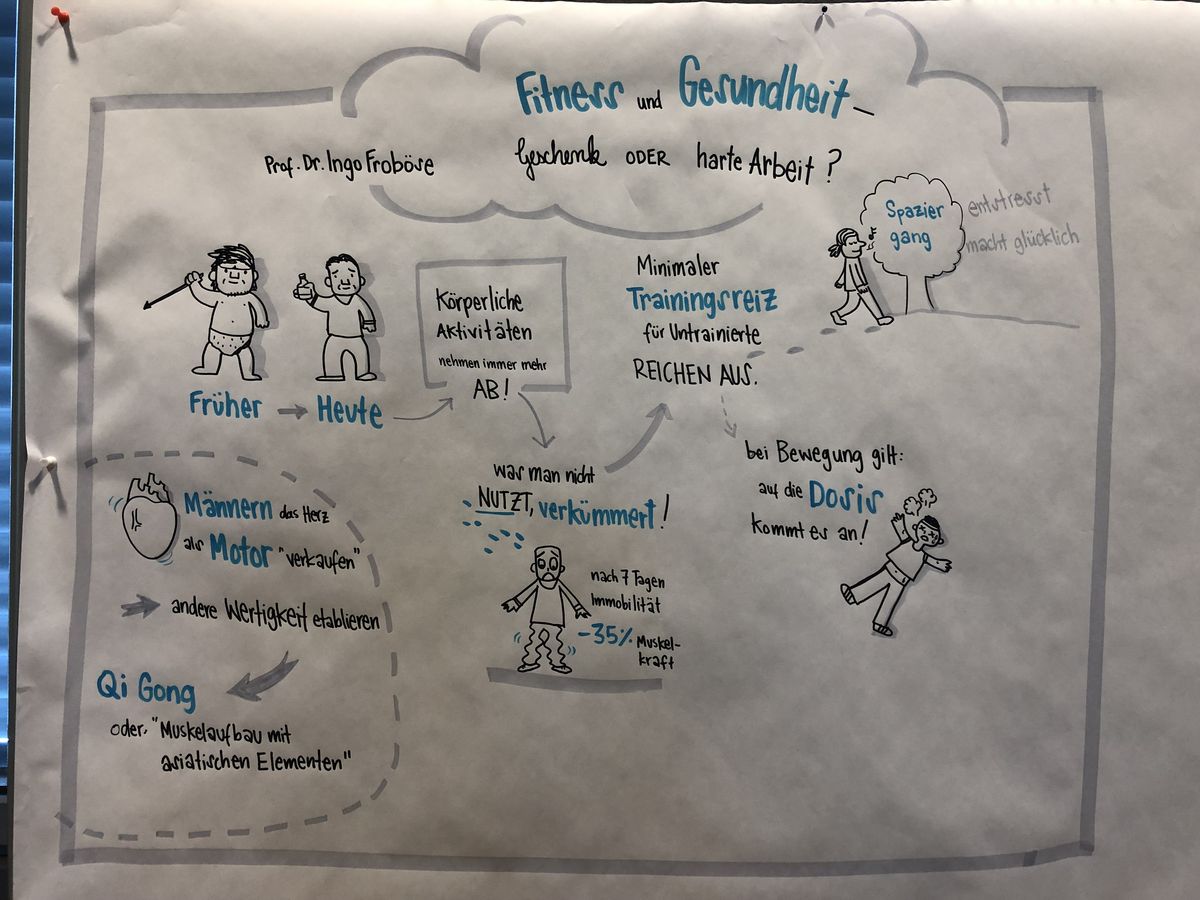 Fitness und Gesundheit –
Geschenk ODER harte Arbeit?
Prof. Dr. Ingo Froböse
Früher → Heute
Körperliche
Aktivitäten
nehmen immer mehr
AB!
was man nicht
NUTZT, verkümmert!
nach 7 Tagen
Immobilität
-35% Muskel-
kraft
Minimaler
Trainingsreiz
für Untrainierte
REICHEN AUS.
Spazier
gang
entstresst
macht glücklich
bei Bewegung gilt:
auf die Dosis
kommt es an!
Männern das Herz
als Motor "verkaufen"
andere Wertigkeit etablieren
Qi Gong
oder "Muskelaufbau mit
asiatischen Elementen"